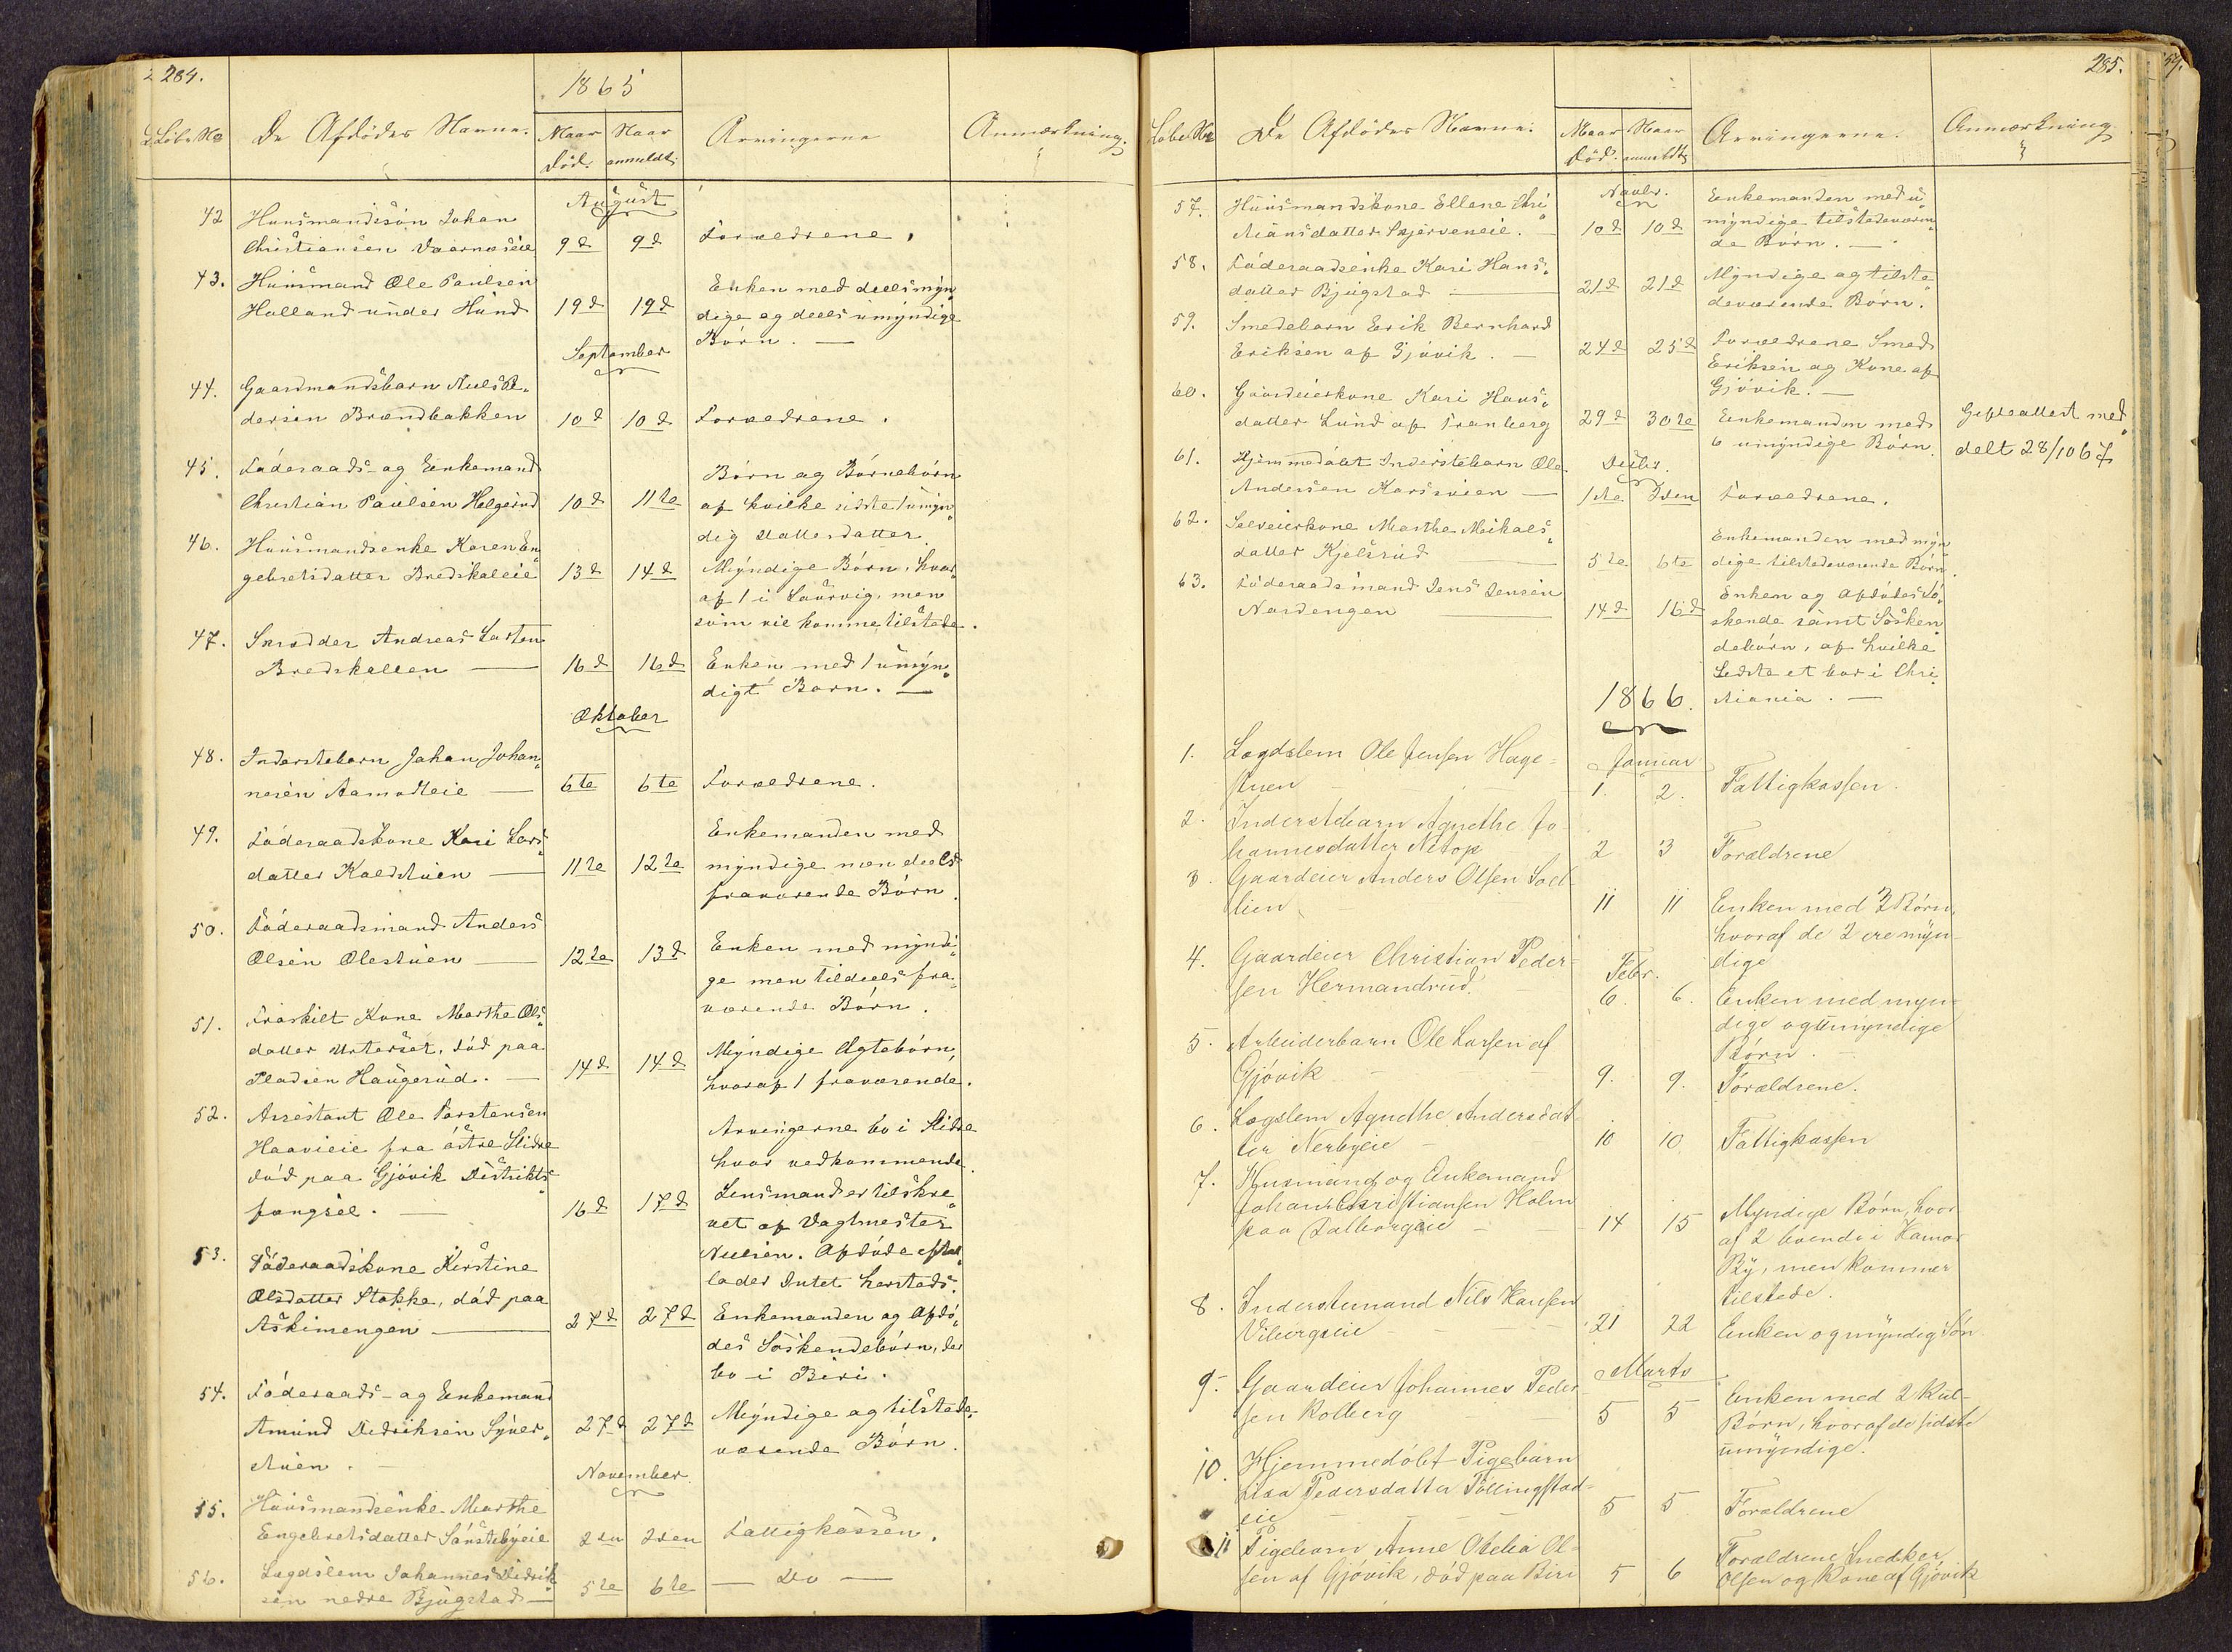 284.
1865
Löbe No
De Afdödes Navne.
Naar död.
Naar anmeldt.
Arvingerne
Anmærkning.
August
42 Huusmandssön Johan
Christiansen Vaarnæseie 9d 9d Forældrene.
43. Huusmand Ole Paulsen
Holland under Hund 19d 19d
Enken med deels myn„
dige og deels umyndige
Börn. —
September
44. Gaardmandsbarn Niels An„
dersen Brændbakken 10d 10d Forældrene.
45. Föderaads- og Enkemand
Christian Paulsen Helgerud 10d 11te
Börn og Börnebörn
af hvilke sidste 1 umyn„
dig Datterdatter.
46. Huusmandsenke Karen En„
gebretsdatter Bredskaleie 13d 14d
Myndige Börn, hvor„
af 1 i Laurvig, men
som vil komme tilstede.
47. Skrædder Andreas Larsen
Bredskallen — 16d 16d
Enken med 1 umyn„
digt Barn. —
Oktober
48. Inderstebarn Johan Johan„
nesen Aamodteie — 6te 6te Forældrene.
49. Föderaadskone Kari Lars„
datter Kaldstuen — 11te 12te
Enkemanden med
myndige men deels
fraværende Börn.
50. Föderaadsmand Anders
Olsen Olestuen — 12te 13d
Enken med myndi„
ge men tildeels fra„
værende Börn.
51. Fraskilt Kone Marthe Ols„
datter Urterset, död paa
Pladsen Haugerud. — 14d 14d
Myndige Ægtebörn,
hvoraf 1 fraværende.
52. Arrestant Ole Torstensen
Haavieie fra östre Slidre
död paa Gjövik Distrikts„
fængsel. — 16d 17d
Arvingerne bo i Slidre
hvor vedkommende
Lensmand er tilskre„
vet af Vagtmester
Nielsen. Afdöde efter„
lader Intet hersteds.
53. Föderaadskone Kirstine
Olsdatter Stokke, död paa
Askimengen — 27d 27d
Enkemanden og Afdö„
des Söskendebörn, der
bo i Biri.
54. Föderaads- og Enkemand
Amund Didriksen Syver„
stuen. — 27d 27d
Myndige og tilstede„
værende Börn.
November
55. Huusmandsenke Marthe
Engebretsdatter Sönstebyeie 2den 2den Fattigkassen.
56. Lægdslem Johannes Didrik„
sen nedre Bjugstad — 5te 6te — Do —
285.
Löbe No
De Afdödes Navne.
Naar Död.
Naar anmeldt
Arvingerne.
Anmærkning.
Novbr.
57. Huusmandskone Ellene Chri„
stiansdatter Skjerveneie. — 10d 10d
Enkemanden med u„
myndige tilstedeværen„
de Börn. —
58. Föderaadsenke Kari Hans„
datter Bjugstad — 21d 21d
Myndige og tilste„
deværende Börn.
59. Smedebarn Erik Bernhard
Eriksen af Gjövik. — 24d 25d
Forældrene Smed
Eriksen og Kone af
Gjövik. —
60. Gaardeierkone Kari Hans„
datter Lund af Tranberg 29d 30te
Enkemanden med
6 umyndige Börn.
Gifteattest med„
delt 28/10 67
61. Hjemmedöbt Inderstebarn Ole
Decbr.
Andersen Karssveen — 1ste 3den Forældrene.
62. Selveierkone Marthe Mikkels„
datter Kjelsrud — 5te 6te
Enkemanden med myn„
dige tilstedeværende Börn.
63. Föderaadsmand Jens Jensen
Nordengen — 14d 16d
Enken og Afdödes Sö„
skende samt Sösken„
debörn, af hvilke
Sidste et bor i Chri„
stiania. —
1866.
Januar
1. Lægdslem Ole Jensen Hage-
stuen — 1. 2. Fattigkassen.
2. Inderstebarn Agnethe Jo-
hannesdatter Netop 2 3 Forældrene
3. Gaardeier Anders Olsen Soel-
lien — 11 11
Enken med 3 Börn,
hvoraf de 2 ere myn-
dige
Febr.
4. Gaardeier Christian Peder-
sen Hermandrud. 6. 6.
Enken med myn-
dige og umyndige
Börn. —
5. Arbeiderbarn Ole Larsen af
Gjövik 9. 9. Forældrene.
6. Lægslem Agnethe Andersdat-
ter Nerbyeie 10 10 Fattigkassen
7. Husmand og Enkemand
Johan Christiansen Holm
paa Dalborgeie 14 15
Myndige Börn, hvor-
af 2 boende i Hamar
By, men kommer
tilstede.
8. Inderstemand Nils Hansen
Vibergseie 21 22 Enken og myndig Sön
Marts
9. Gaardeier Johannes Peder-
sen Kolberg 5 5
Enken med 2 Kul-
Börn, hvoraf de sidste
umyndige.
10. Hjemmedöbt Pigebarn
Lisa Pedersdatter Töllingstad-
eie 5 5 Forældrene
11 Pigebarn Anne Otelia Ol-
sen af Gjövik, död paa Biri 5 6
Forældrene Snedker
Olsen og Kone af Gjövik